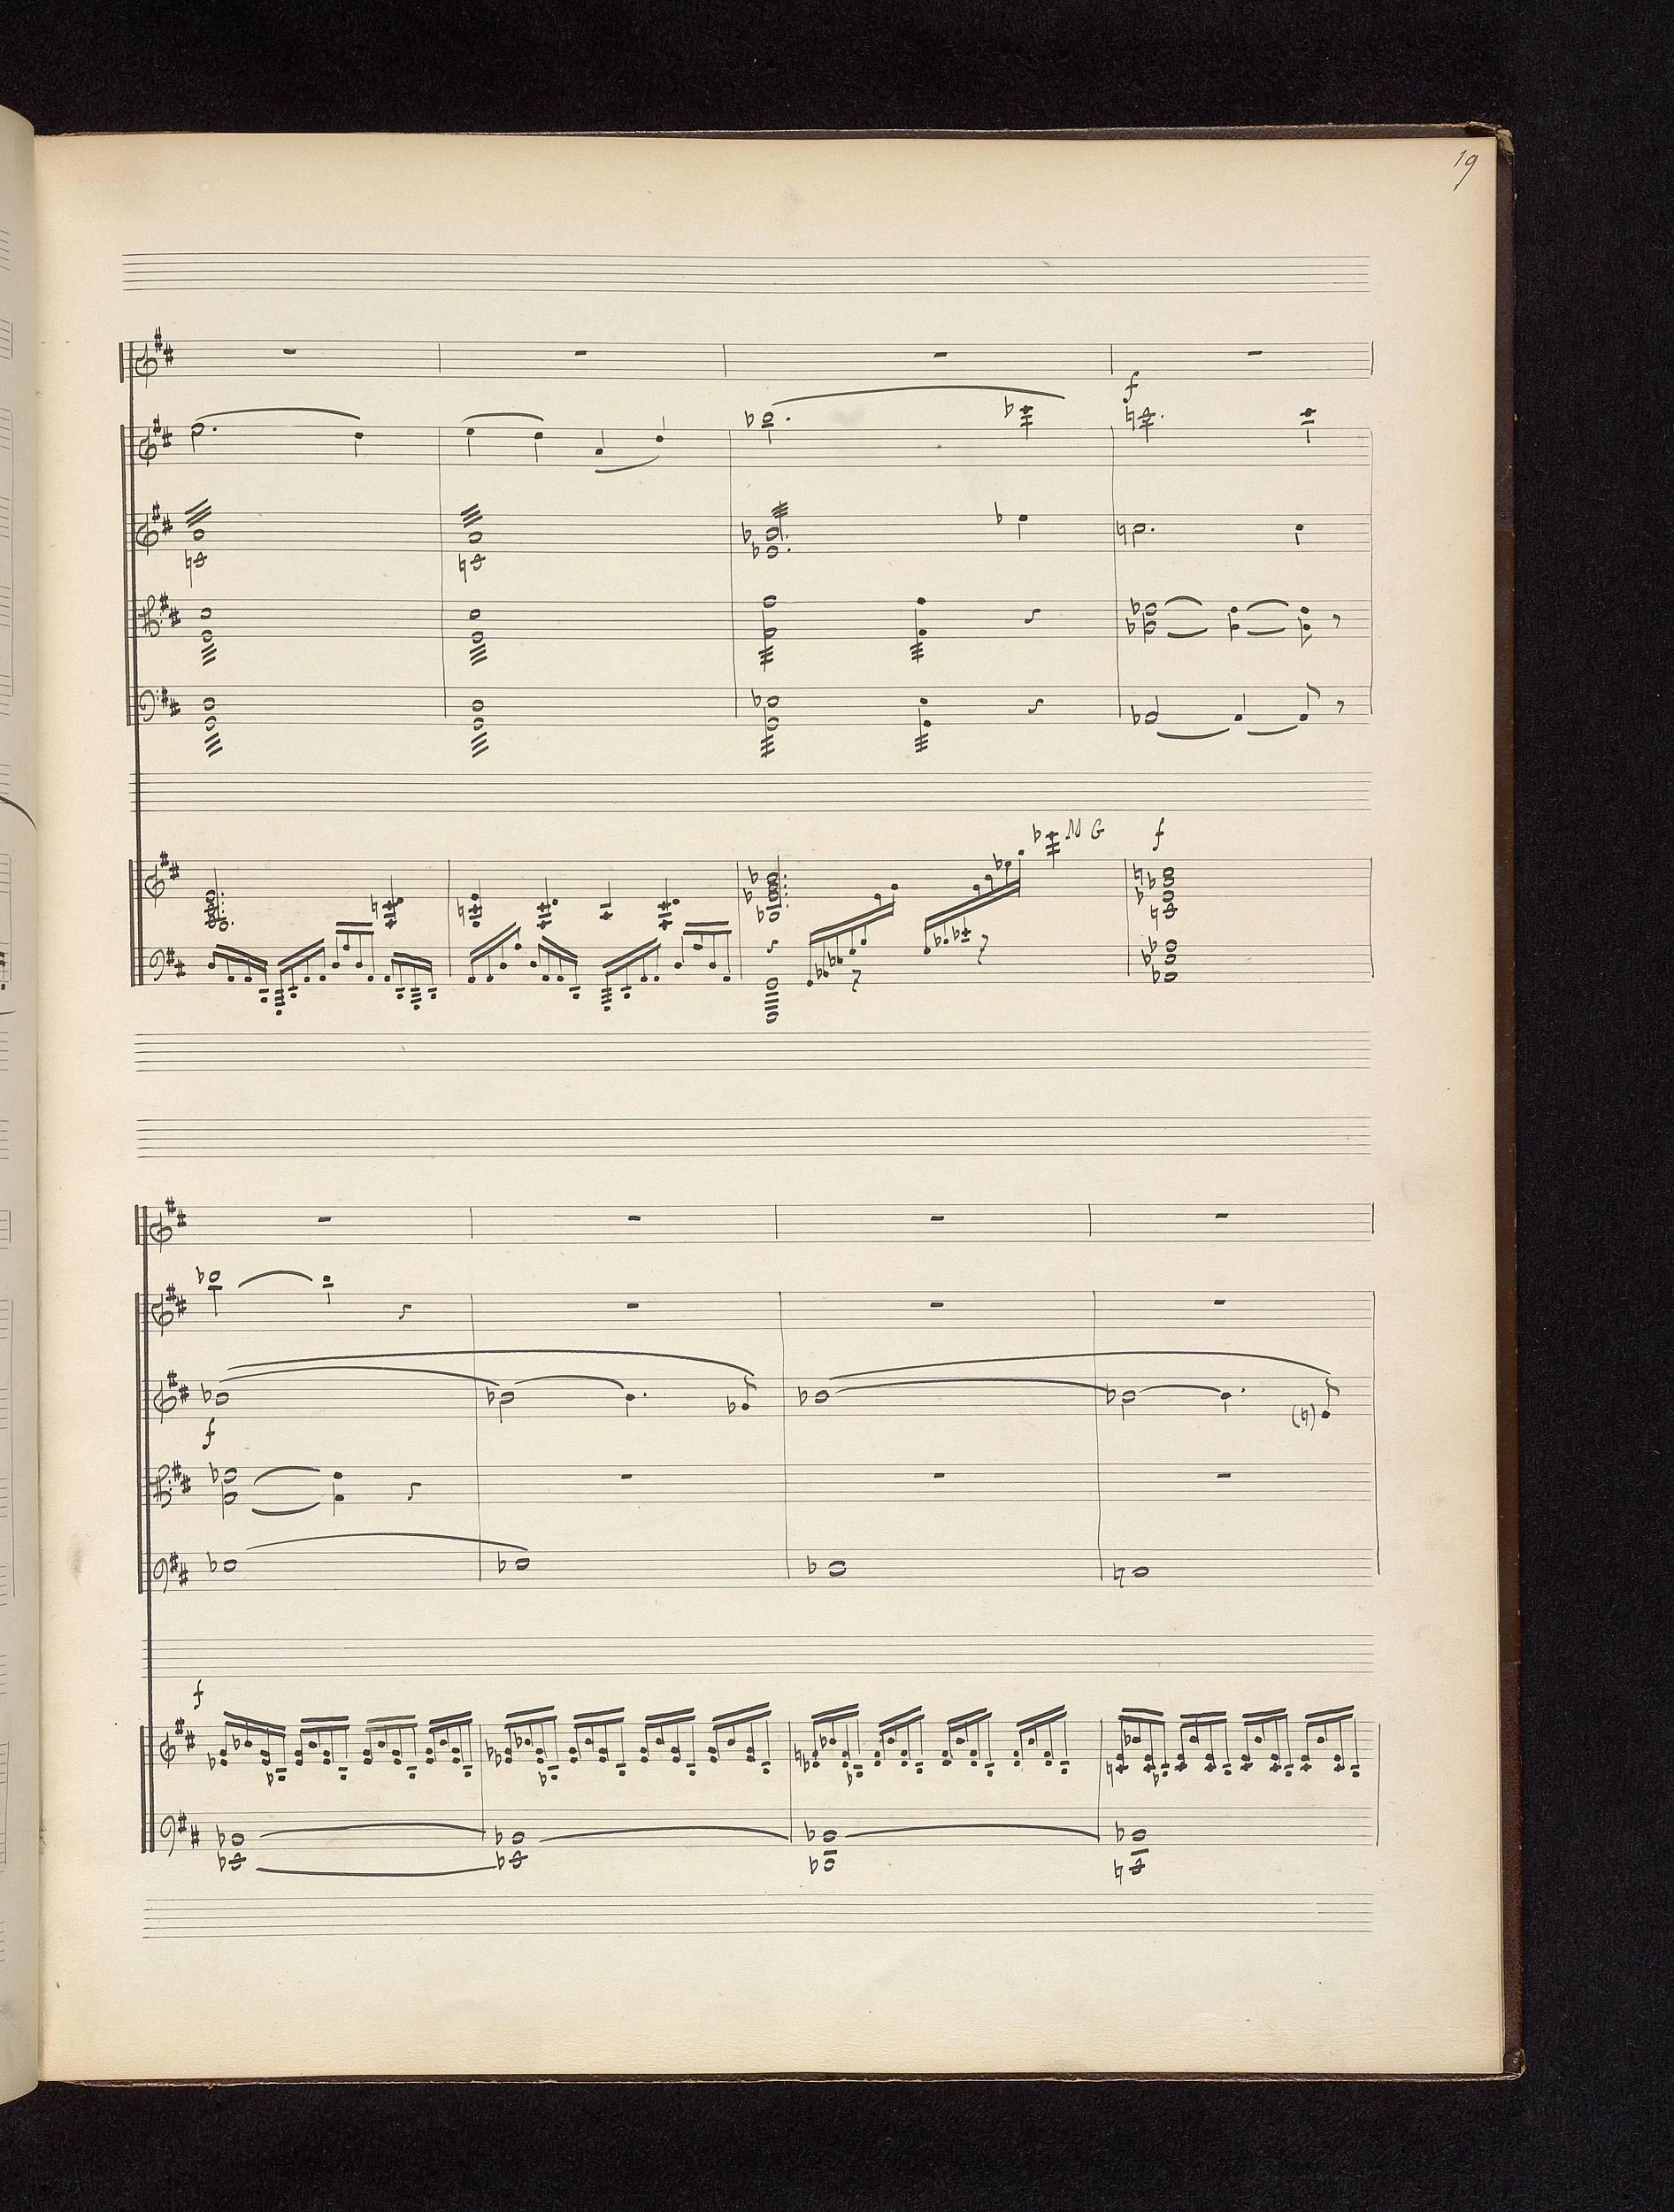 19
f
M G f
f
f